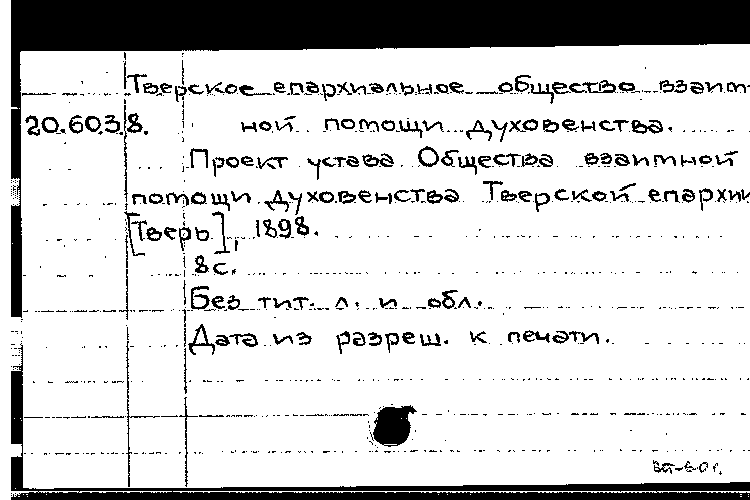 Тверское епархиальное общество взаим-
20.603 8. ной помощи духовенства.
Проект устава Общества взаимной
помощи духовенства Тверской епархии
[Тверь], 1898.
8 с.
Без тит. л. и обл.
Дата из разреш. к печати.